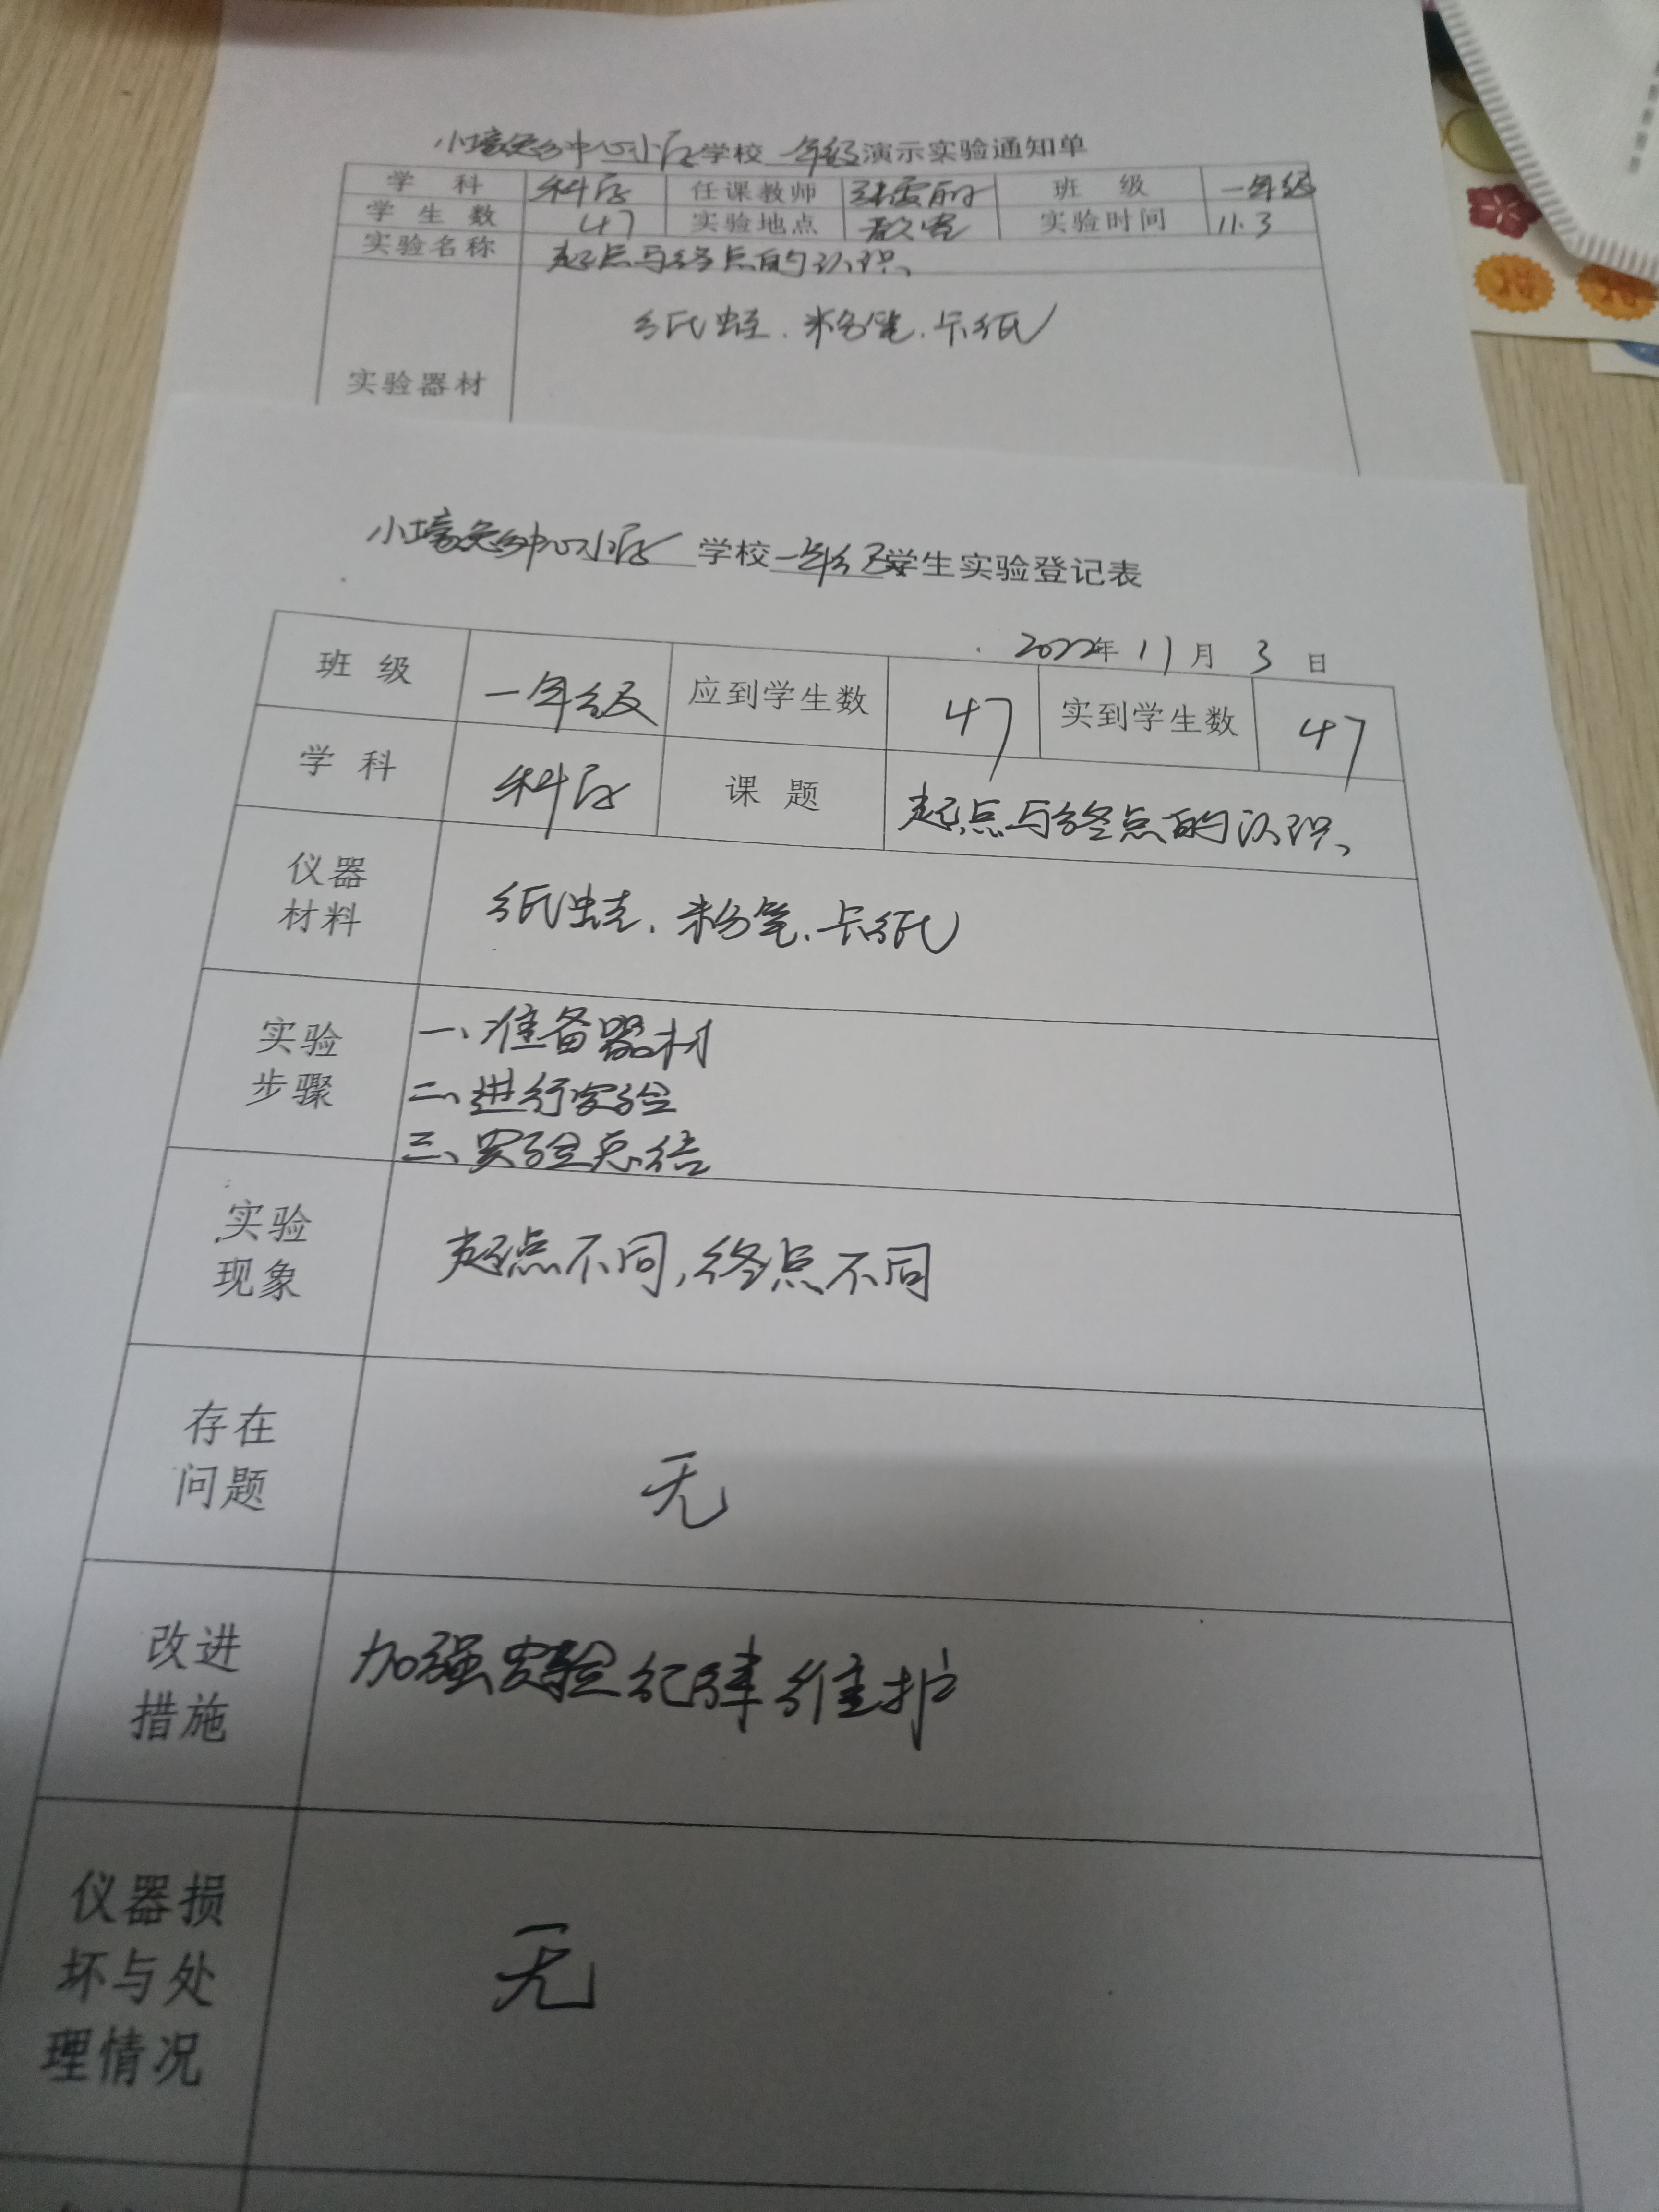 小 中心小学学校一年级演示实验通知单
学 科 科学 任课教师 班 级 一年级
学生数 47 实验地点 教室 实验时间 11.3
实验名称 起点与终点的认识、
纸蛙、粉笔、卡纸
实验器材
小 中心小学 学校一年级学生实验登记表
2022年 11月 3 日
班 级 一年级 应到学生数 47 实到学生数 47
学 科 科学 课 题 起点与终点的认识、
仪器
材料
纸蛙、粉笔、卡纸
实验
步骤
一、准备器材
二、进行实验
三、实验总结
实验
现象
起点不同,终点不同
存在
问题
无
改进
措施
加强实验纪律维护
仪器损
坏与处
理情况
无